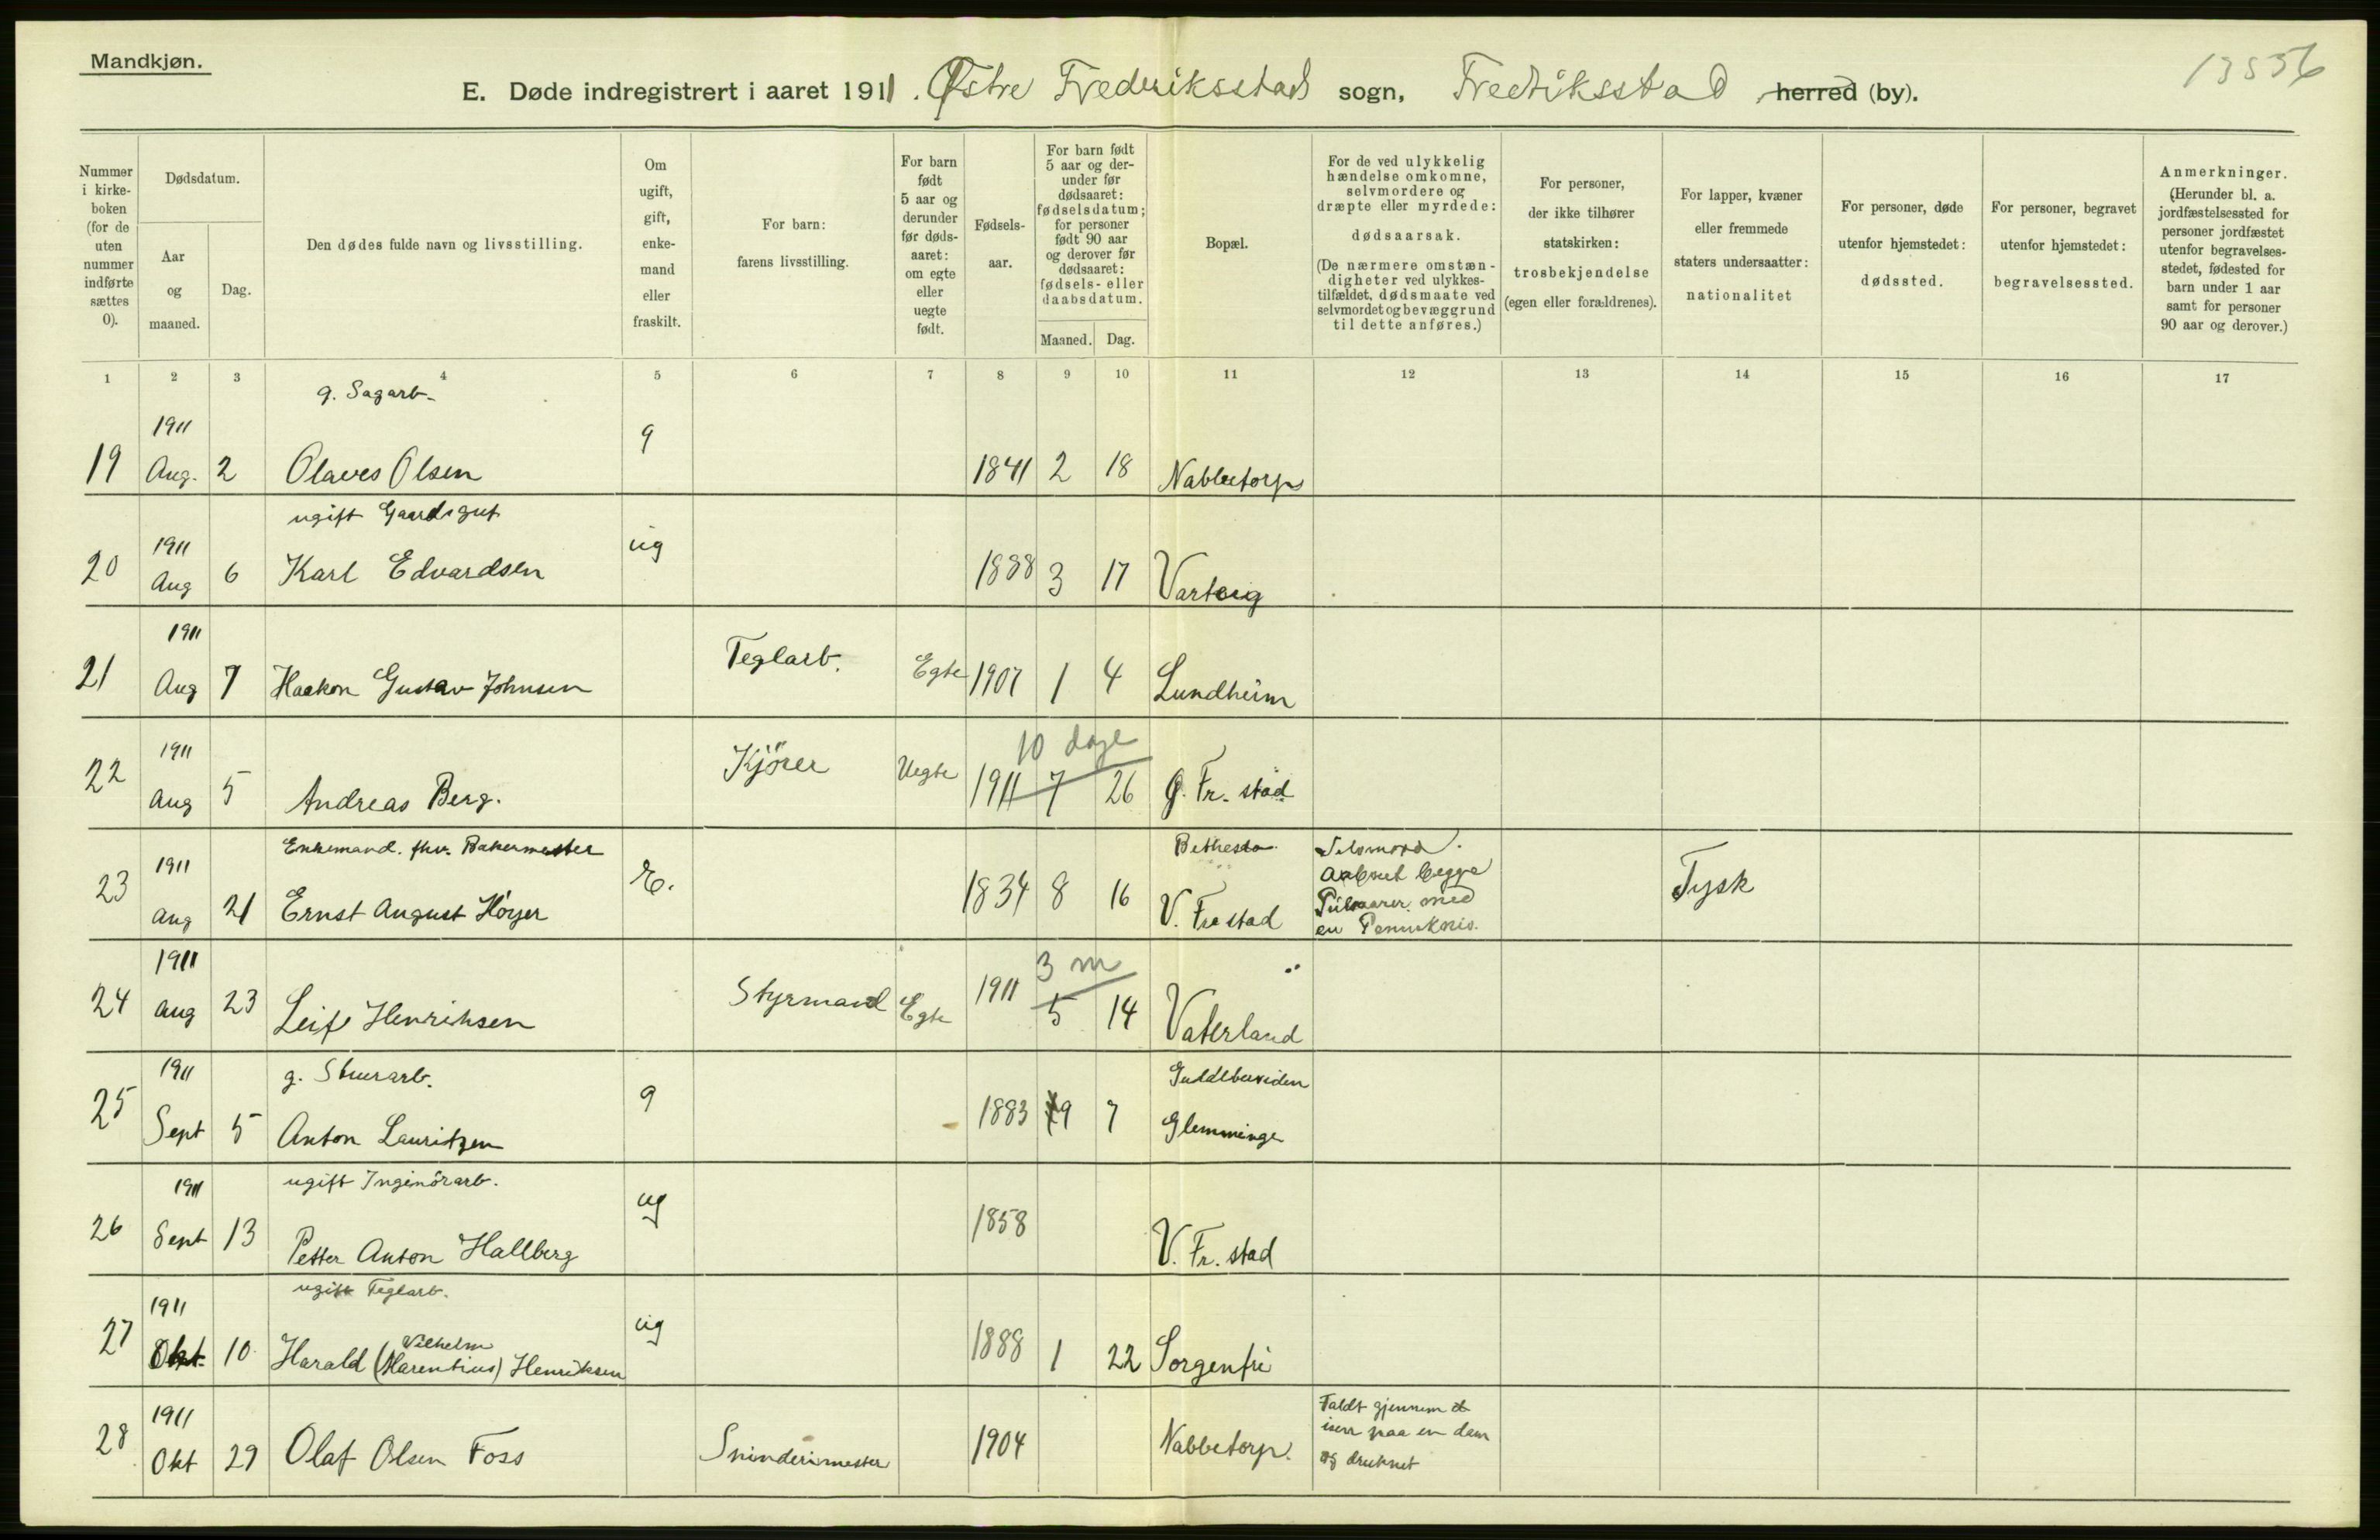 Mandkjøn.
13536
E. Døde indregistrert i aaret 1911. Østre Frederiksstad sogn, Fredriksstad herred (by).
Nummer i kirkeboken (for de uten nummer indførte sættes 0).
Dødsdatum.
Aar og maaned.
Dag.
Den dødes fulde navn og livsstilling.
Om ugift, gift, enkemand eller fraskilt.
For barn: farens livsstilling.
For barn født 5 aar og derunder før dødsaaret: om egte eller uegte født.
Fødselsaar.
For barn født 5 aar og derunder før dødsaaret: fødselsdatum; for personer født 90 aar og derover før dødsaaret: fødsels- eller daabsdatum.
Maaned.
Dag.
Bopæl.
For de ved ulykkelig hændelse omkomne, selvmordere og dræpte eller myrdede: dødsaarsak. (De nærmere omstændigheter ved ulykkestilfældet, dødsmaate ved selvmordet og bevæggrund til dette anføres.)
For personer, der ikke tilhører statskirken: trosbekjendelse (egen eller forældrenes).
For lapper, kvæner eller fremmede staters undersaatter: nationalitet
For personer, døde utenfor hjemstedet: dødssted.
For personer, begravet utenfor hjemstedet: begravelsessted.
Anmerkninger. (Herunder bl. a. jordfæstelsessted for personer jordfæstet utenfor begravelsesstedet, fødested for barn under 1 aar samt for personer 90 aar og derover.)
1 2 3 4 5 6 7 8 9 10 11 12 13 14 15 16 17
g. Sagarb.
19 1911 Aug. 2 Olaves Olsen g 1841 2 18 Nabbetorp
ugift Gaardsgut
20 1911 Aug 6 Karl Edvardsen ug 1888 3 17 Varteig
21 1911 Aug 7 Haakon Gustav Johnsen Teglarb. Egte 1907 1 4 Lundheim
10 dage
22 1911 Aug 5 Andreas Berg. Kjörer Uegte 1911 7 26 Ø. Fr. stad
Enkemand. fhv. Bakermester
Bethesda
23 1911 Aug 21 Ernst August Höyer E. 1834 8 16 V. Fr stad Selvmord. begge Pulsaarer med en Tysk
3 m
24 1911 Aug 23 Leif Henriksen Styrmand Egte 1911 5 14 Vaterland
g. Stuerarb.
25 1911 Sept 5 Anton Lauritzen g 1883 9 7 Glemminge
ugift Ingeniörarb.
26 1911 Sept 13 Petter Anton Hallberg ug 1858 V. Fr. stad
ugift Teglarb.
Vilhelm
27 1911 Okt 10 Harald (Marentius) Henriksen ug 1888 1 22 Sorgenfri
28 1911 Okt 29 Olaf Olsen Foss Spinderimester 1904 Nabbetorp. Faldt gjennem isen paa en dam og druknet